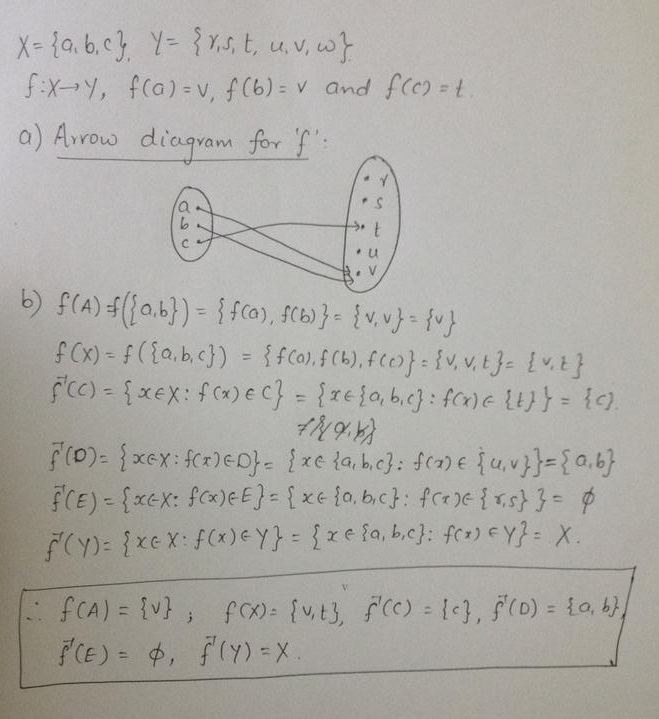 X = {a, b, c}, Y = {r, s, t, u, v, w}.
f: X→Y, f(a) = v, f(b) = v and f(c) = t.
a) Arrow diagram for 'f':
a
b
c
r
s
t
u
v
b) f(A) = f({a,b}) = {f(a), f(b)} = {v, v} = {v}
f(X) = f({a,b,c}) = {f(a), f(b), f(c)} = {v, v, t} = {v, t}
f⁻¹(C) = {x∈X : f(x)∈C} = {x∈{a,b,c} : f(x)∈{t}} = {c}.
f⁻¹(D) = {x∈X : f(x)∈D} = {x∈{a,b,c} : f(x)∈{u,v}} = {a,b}
f⁻¹(E) = {x∈X : f(x)∈E} = {x∈{a,b,c} : f(x)∈{r,s}} = ϕ
f⁻¹(Y) = {x∈X : f(x)∈Y} = {x∈{a,b,c} : f(x)∈Y} = X.
∴ f(A) = {v} ; f(X) = {v,t}, f⁻¹(C) = {c}, f⁻¹(D) = {a,b},
f⁻¹(E) = ϕ, f⁻¹(Y) = X.